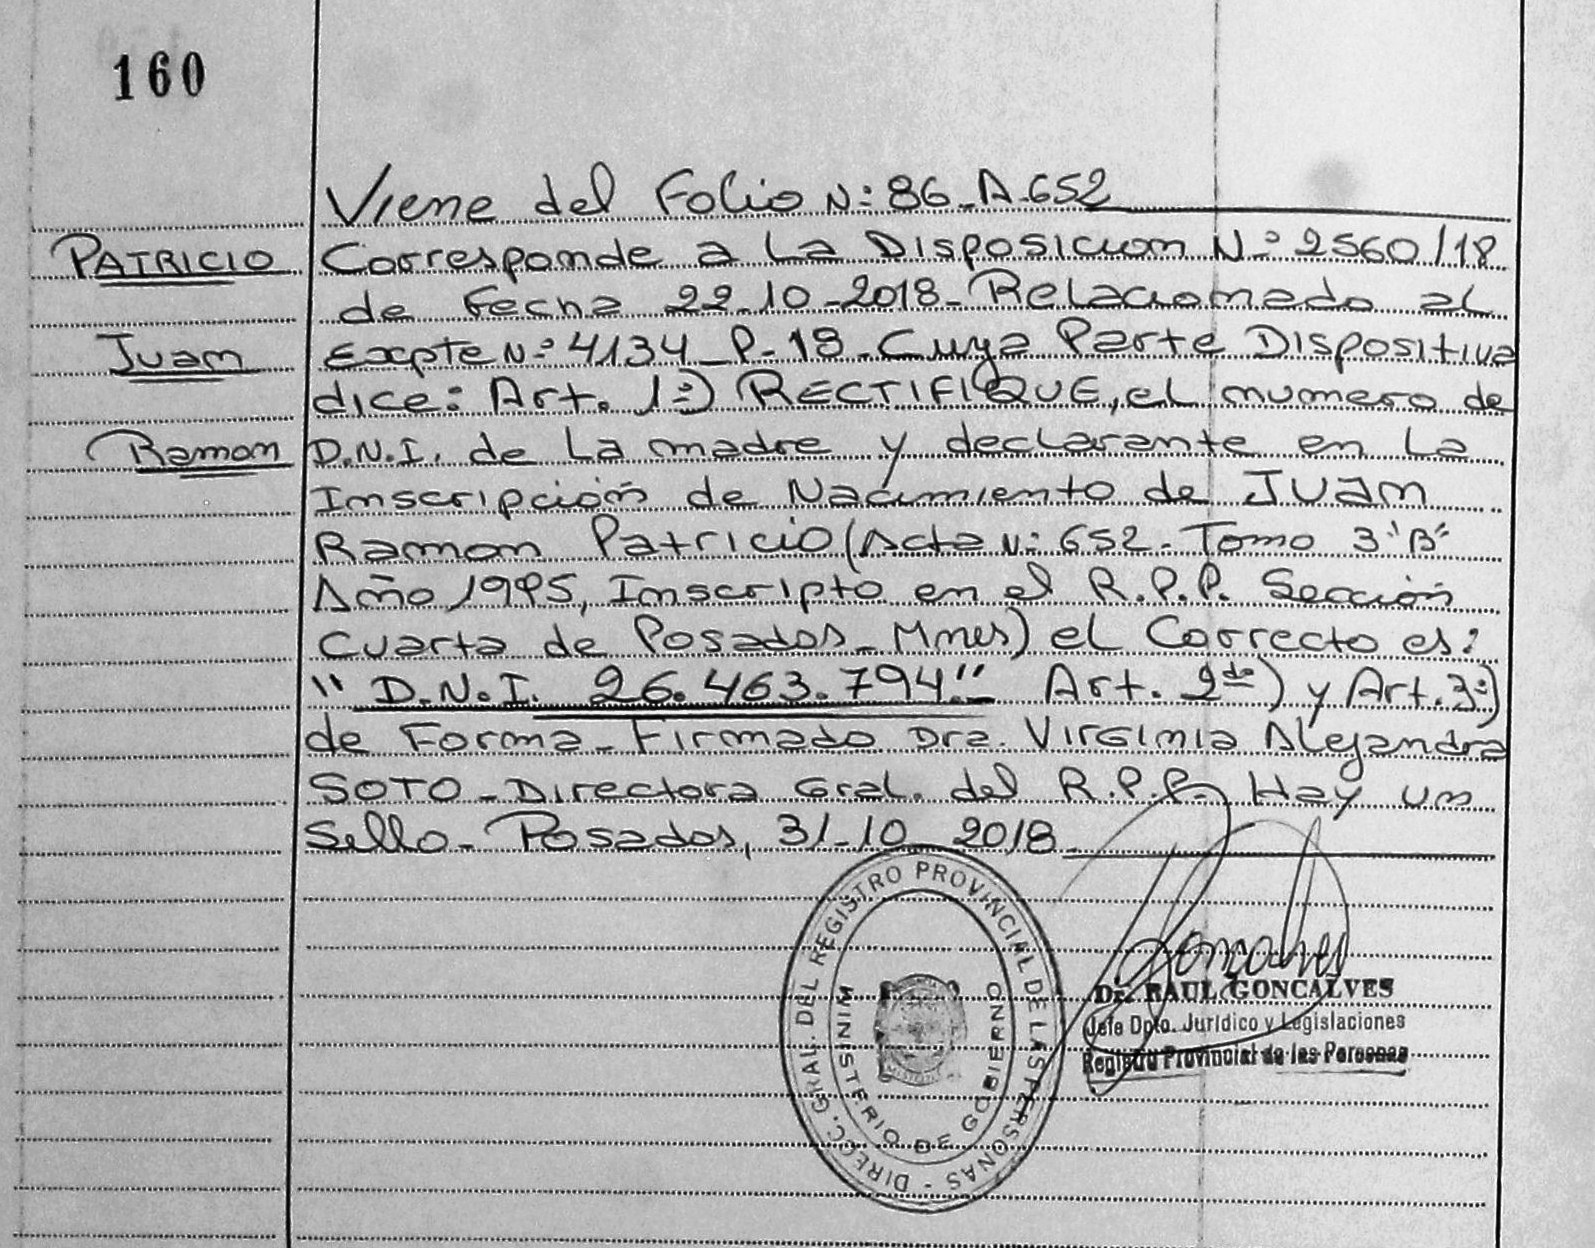 160
Viene del Folio N: 86-A-652
PATRICIO
Juan
Ramon
Corresponde a La Disposicion N: 2560/18
de Fecha 22-10-2018- Relacionado al
Expte N: 4134-P-18-Cuya Parte Dispositiva
dice: Art. 1º) RECTIFIQUE, el numero de
D.N.I. de La madre y declarante en La
Inscripción de Nacimiento de JUAN
Ramon Patricio (Acta N: 652-Tomo 3"B"
Año 1995, Inscripto en el R.P.P. Sección
Cuarta de Posadas-Mnes) el Correcto es:
"D.N.I. 26.463.794." Art. 2do) y Art. 3º)
de Forma-Firmado Dra. Virginia Alejandra
SOTO-Directora Gral. del R.P.P. Hay un
Sello-Posadas, 31-10-2018-
DIRECC. GRAL. DEL REGISTRO PROVINCIAL DE LAS PERSONAS -
MINISTERIO DE GOBIERNO
MISIONES
Dr. RAUL GONCALVES
Jefe Dpto. Jurídico y Legislaciones
Registro Provincial de las Personas